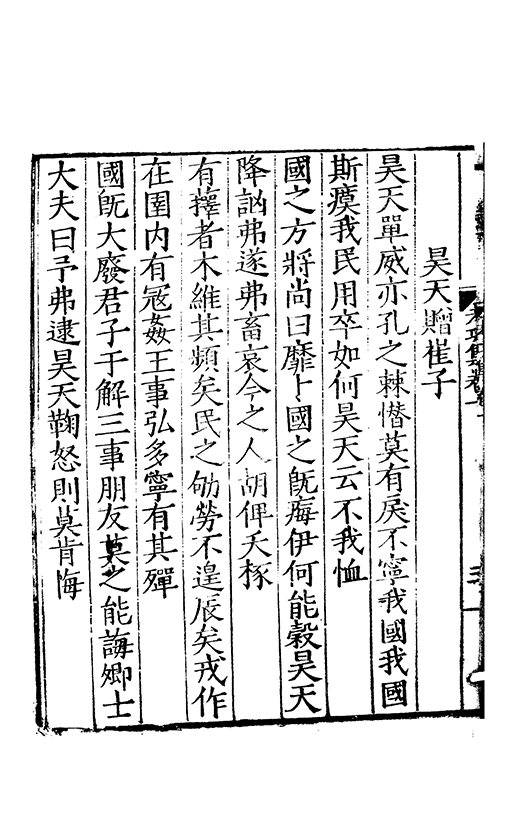 昊天贈崔子
昊天單威亦孔之棘憯莫有戾不寧我國我國
斯瘼我民用卒如何昊天云不我恤
國之方將尚曰靡卜國之旣痗伊何能穀昊天
降訩弗遂弗畜哀今之人胡俾夭椓
有蘀者木維其頻矣民之劬勞不遑辰矣戎作
在圉內有冦姦王事弘多寧有其殫
國旣大廢君子于解三事朋友莫之能誨卿士
大夫曰予弗逮昊天鞠怒則莫肯悔